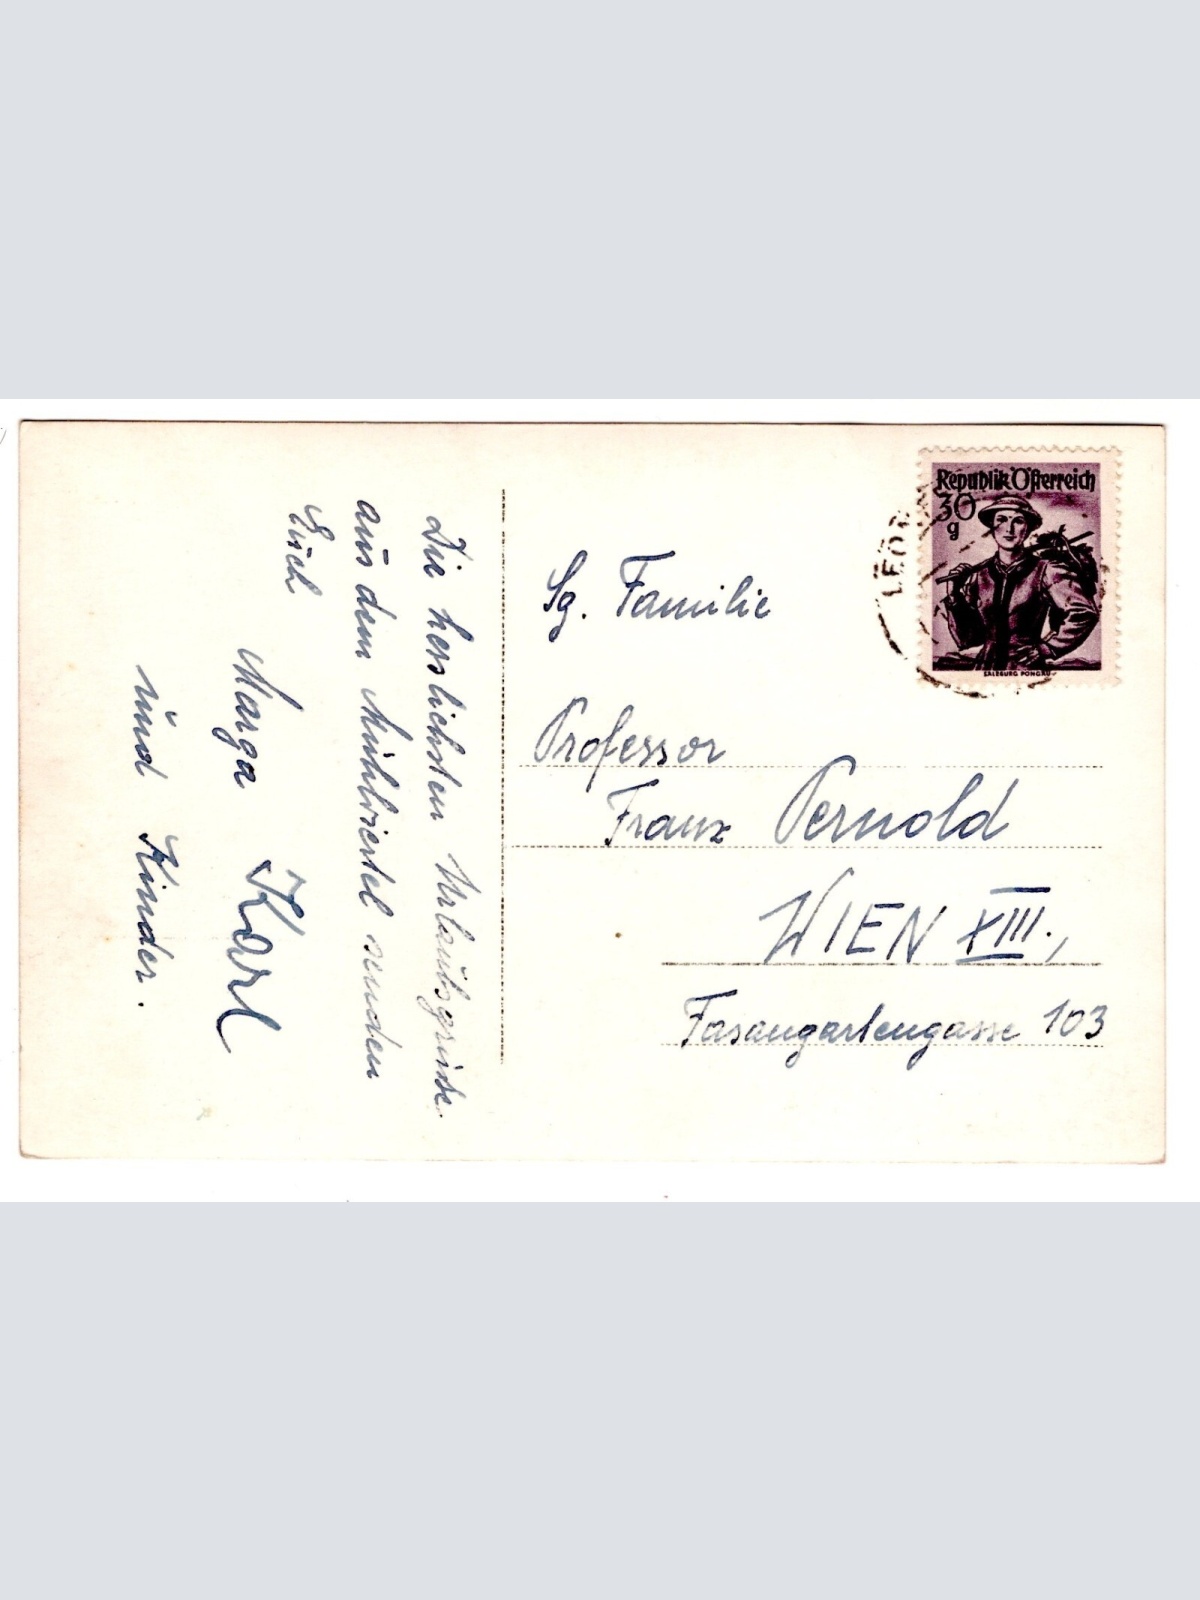 Die herzlichsten Urlaubsgrüße
aus dem Mühlviertel senden
Euch
Marga Karl
und Kinder.
Republik Österreich
30
g
SALZBURG PONGAU
Sg. Familie
Professor
Franz Pernold
WIEN XIII.,
Fasangartengasse 103